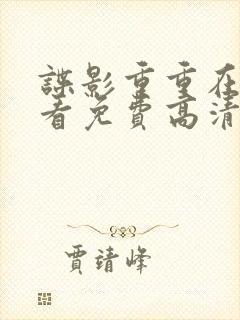 諜影重重在
看免費高清
賈靖峰